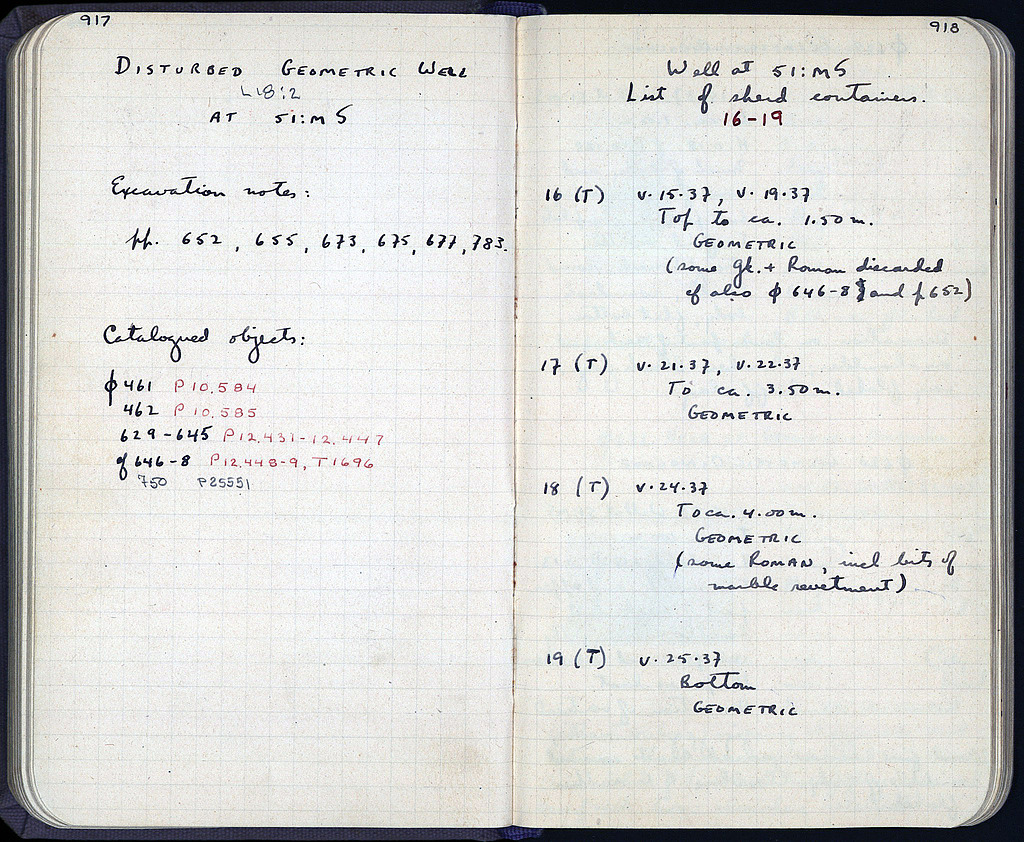 917
DISTURBED GEOMETRIC WELL
L18:2
AT 51:MS
Excavation notes:
pp. 652, 655, 673, 675, 677, 783.
Catalogued objects:
φ 461 P 10,584
462 P 10,585
629-645 P12,431-12,447
cf 646-8 P12,448-9, T1696
750 P25551
918
Well at 51:MS
List of sherd containers.
16-19
16 (T) V·15·37, V·19·37
Top to ca. 1.50 m.
GEOMETRIC
(some Gk. + Roman discarded
cf also φ 646-8 and p 652)
17 (T) V·21·37, V·22·37
To ca. 3.50 m.
GEOMETRIC
18 (T) V·24·37
To ca. 4.00 m.
GEOMETRIC
(some ROMAN, incl bits of
marble revetment)
19 (T) V·25·37
Bottom
GEOMETRIC